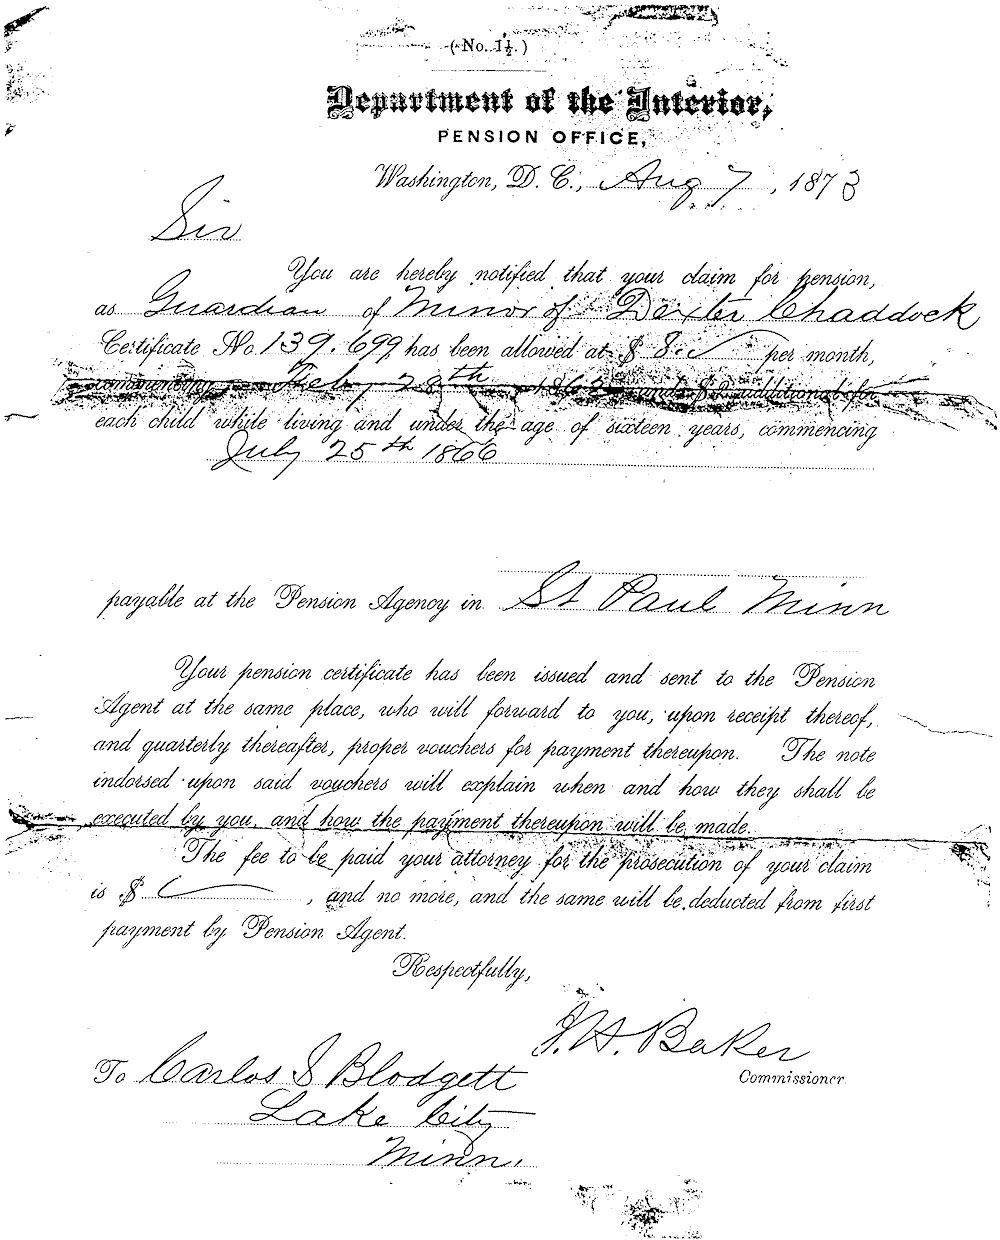 (No. 1½.)
Department of the Interior,
PENSION OFFICE,
Washington, D. C., Aug 7, 1873
Sir
You are hereby notified that your claim for pension,
as Guardian of Minor of Dexter Chaddock
Certificate No. 139.699, has been allowed at $ 8. per month,
commencing Feby 28th 1863 and $2 additional for
each child while living and under the age of sixteen years, commencing
July 25th 1866
payable at the Pension Agency in St Paul Minn
Your pension certificate has been issued and sent to the Pension
Agent at the same place, who will forward to you, upon receipt thereof,
and quarterly thereafter, proper vouchers for payment thereupon. The note
indorsed upon said vouchers will explain when and how they shall be
executed by you, and how the payment thereupon will be made.
The fee to be paid your attorney for the prosecution of your claim
is $ , and no more, and the same will be deducted from first
payment by Pension Agent.
Respectfully,
J. H. Baker
Commissioner
To Carlos S Blodgett
Lake City
Minn.